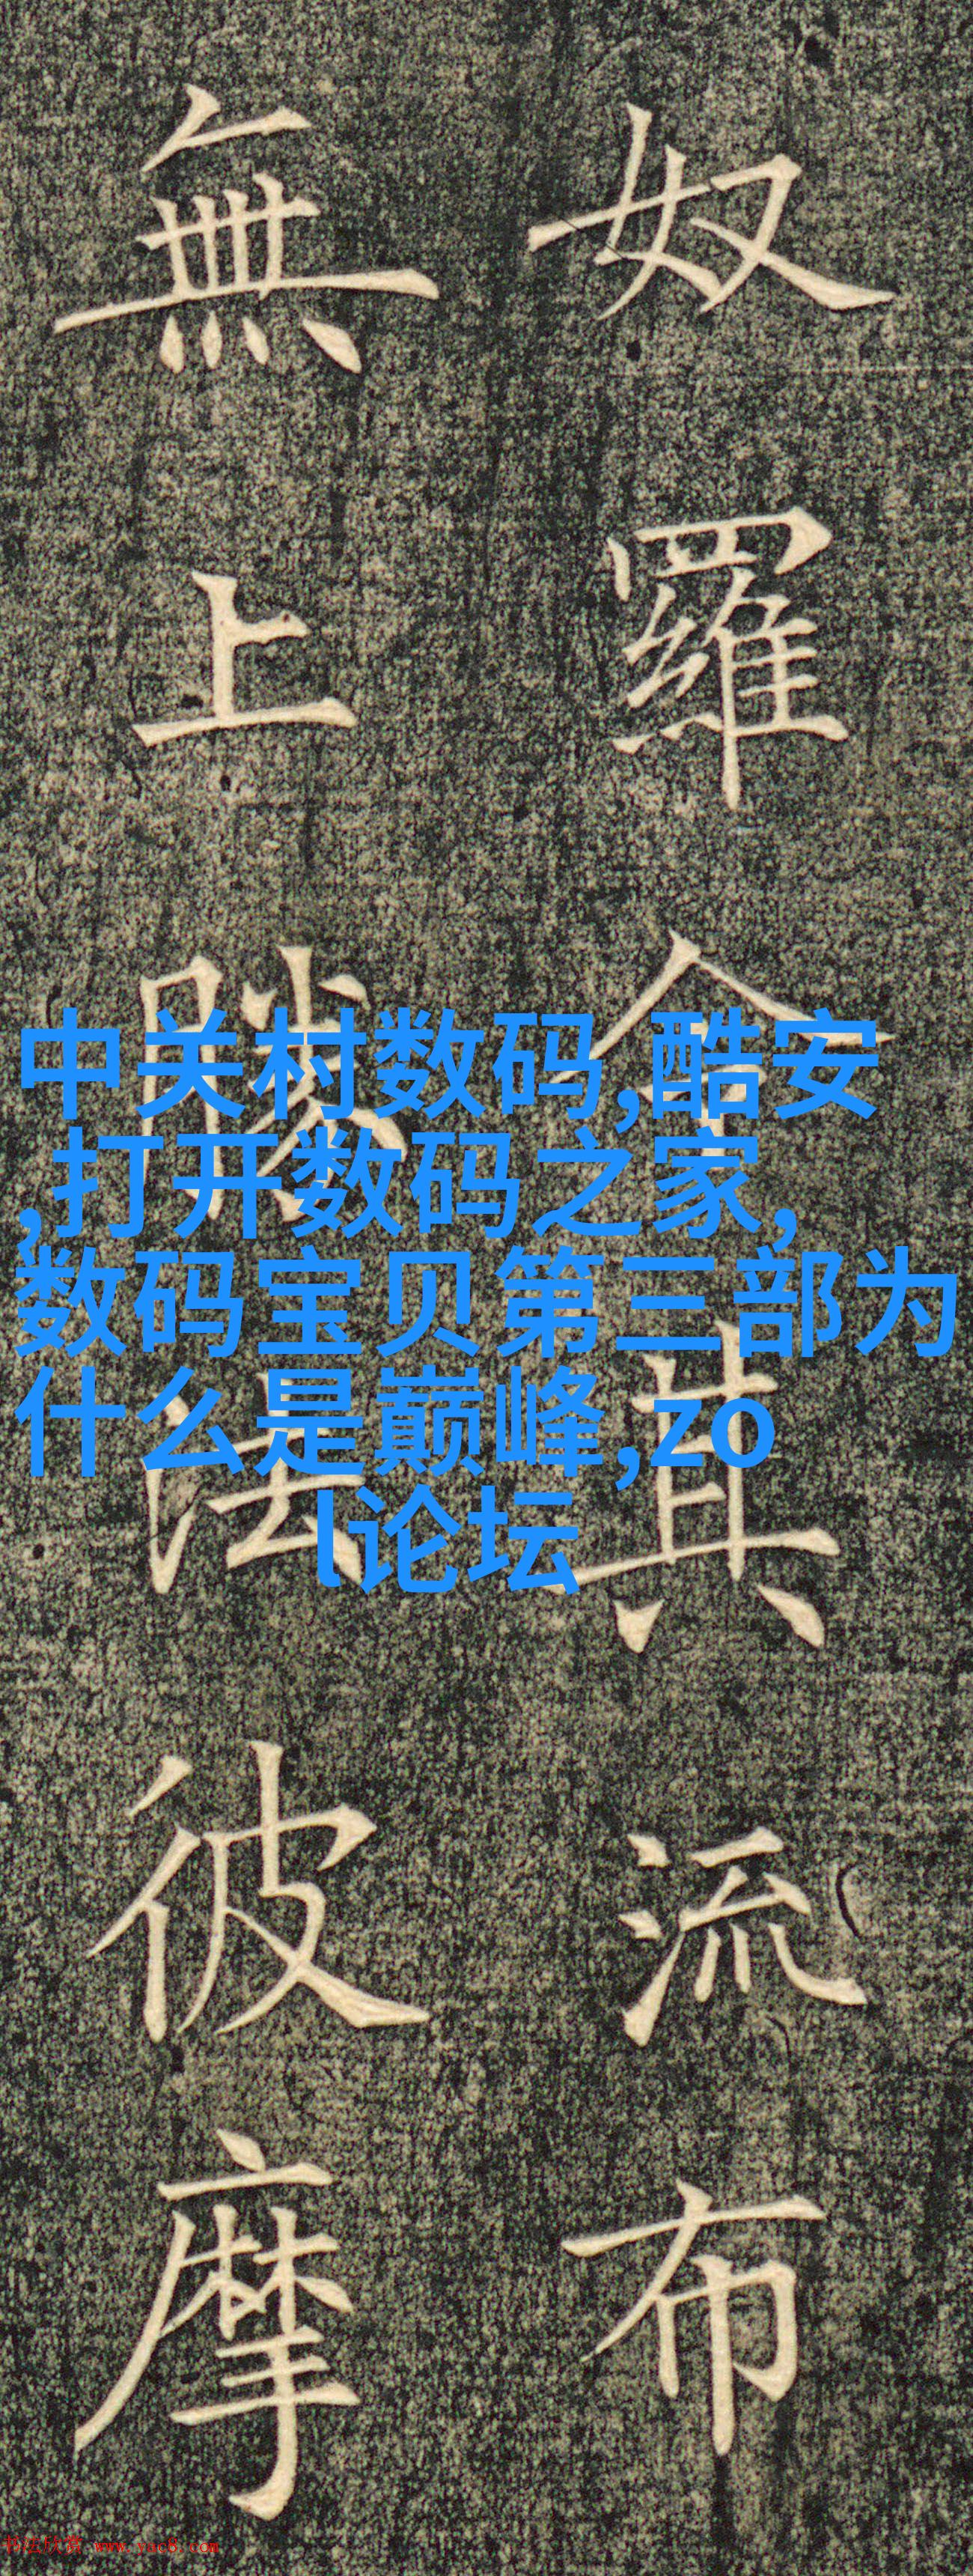 奴羅令其流布
無上勝法彼摩
中关村数码,酷安
,打开数码之家,
数码宝贝第三部为
什么是巅峰,zo
l论坛
书法欣赏 www.yac8.com